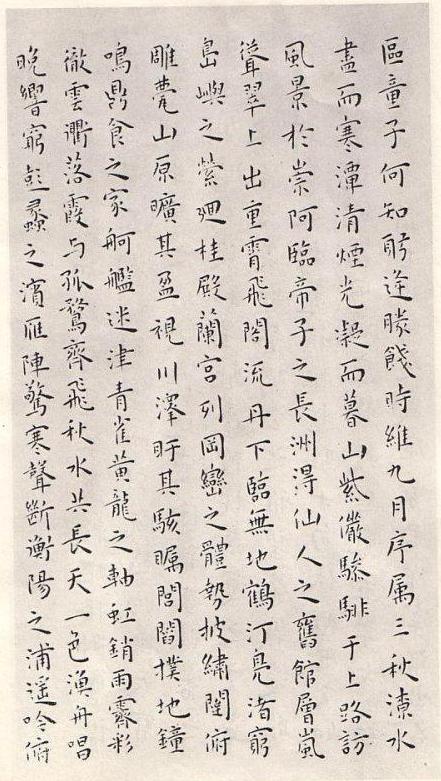 區童子何知躬逢勝餞時維九月序属三秋潦水
盡而寒潭清煙光凝而暮山紫儼驂騑于上路訪
風景於崇阿臨帝子之長洲得仙人之舊館層嵐
聳翠上出重霄飛閣流丹下臨無地鶴汀鳧渚窮
島嶼之縈迴桂殿蘭宮列岡巒之體勢披繡闥俯
雕甍山原曠其盈視川澤盱其駭矚閭閻撲地鐘
鳴鼎食之家舸艦迷津青雀黃龍之軸虹銷雨霽彩
徹雲衢落霞与孤鶩齊飛秋水共長天一色漁舟唱
晚響窮彭蠡之濱雁陣驚寒聲斷衡陽之浦遥吟俯